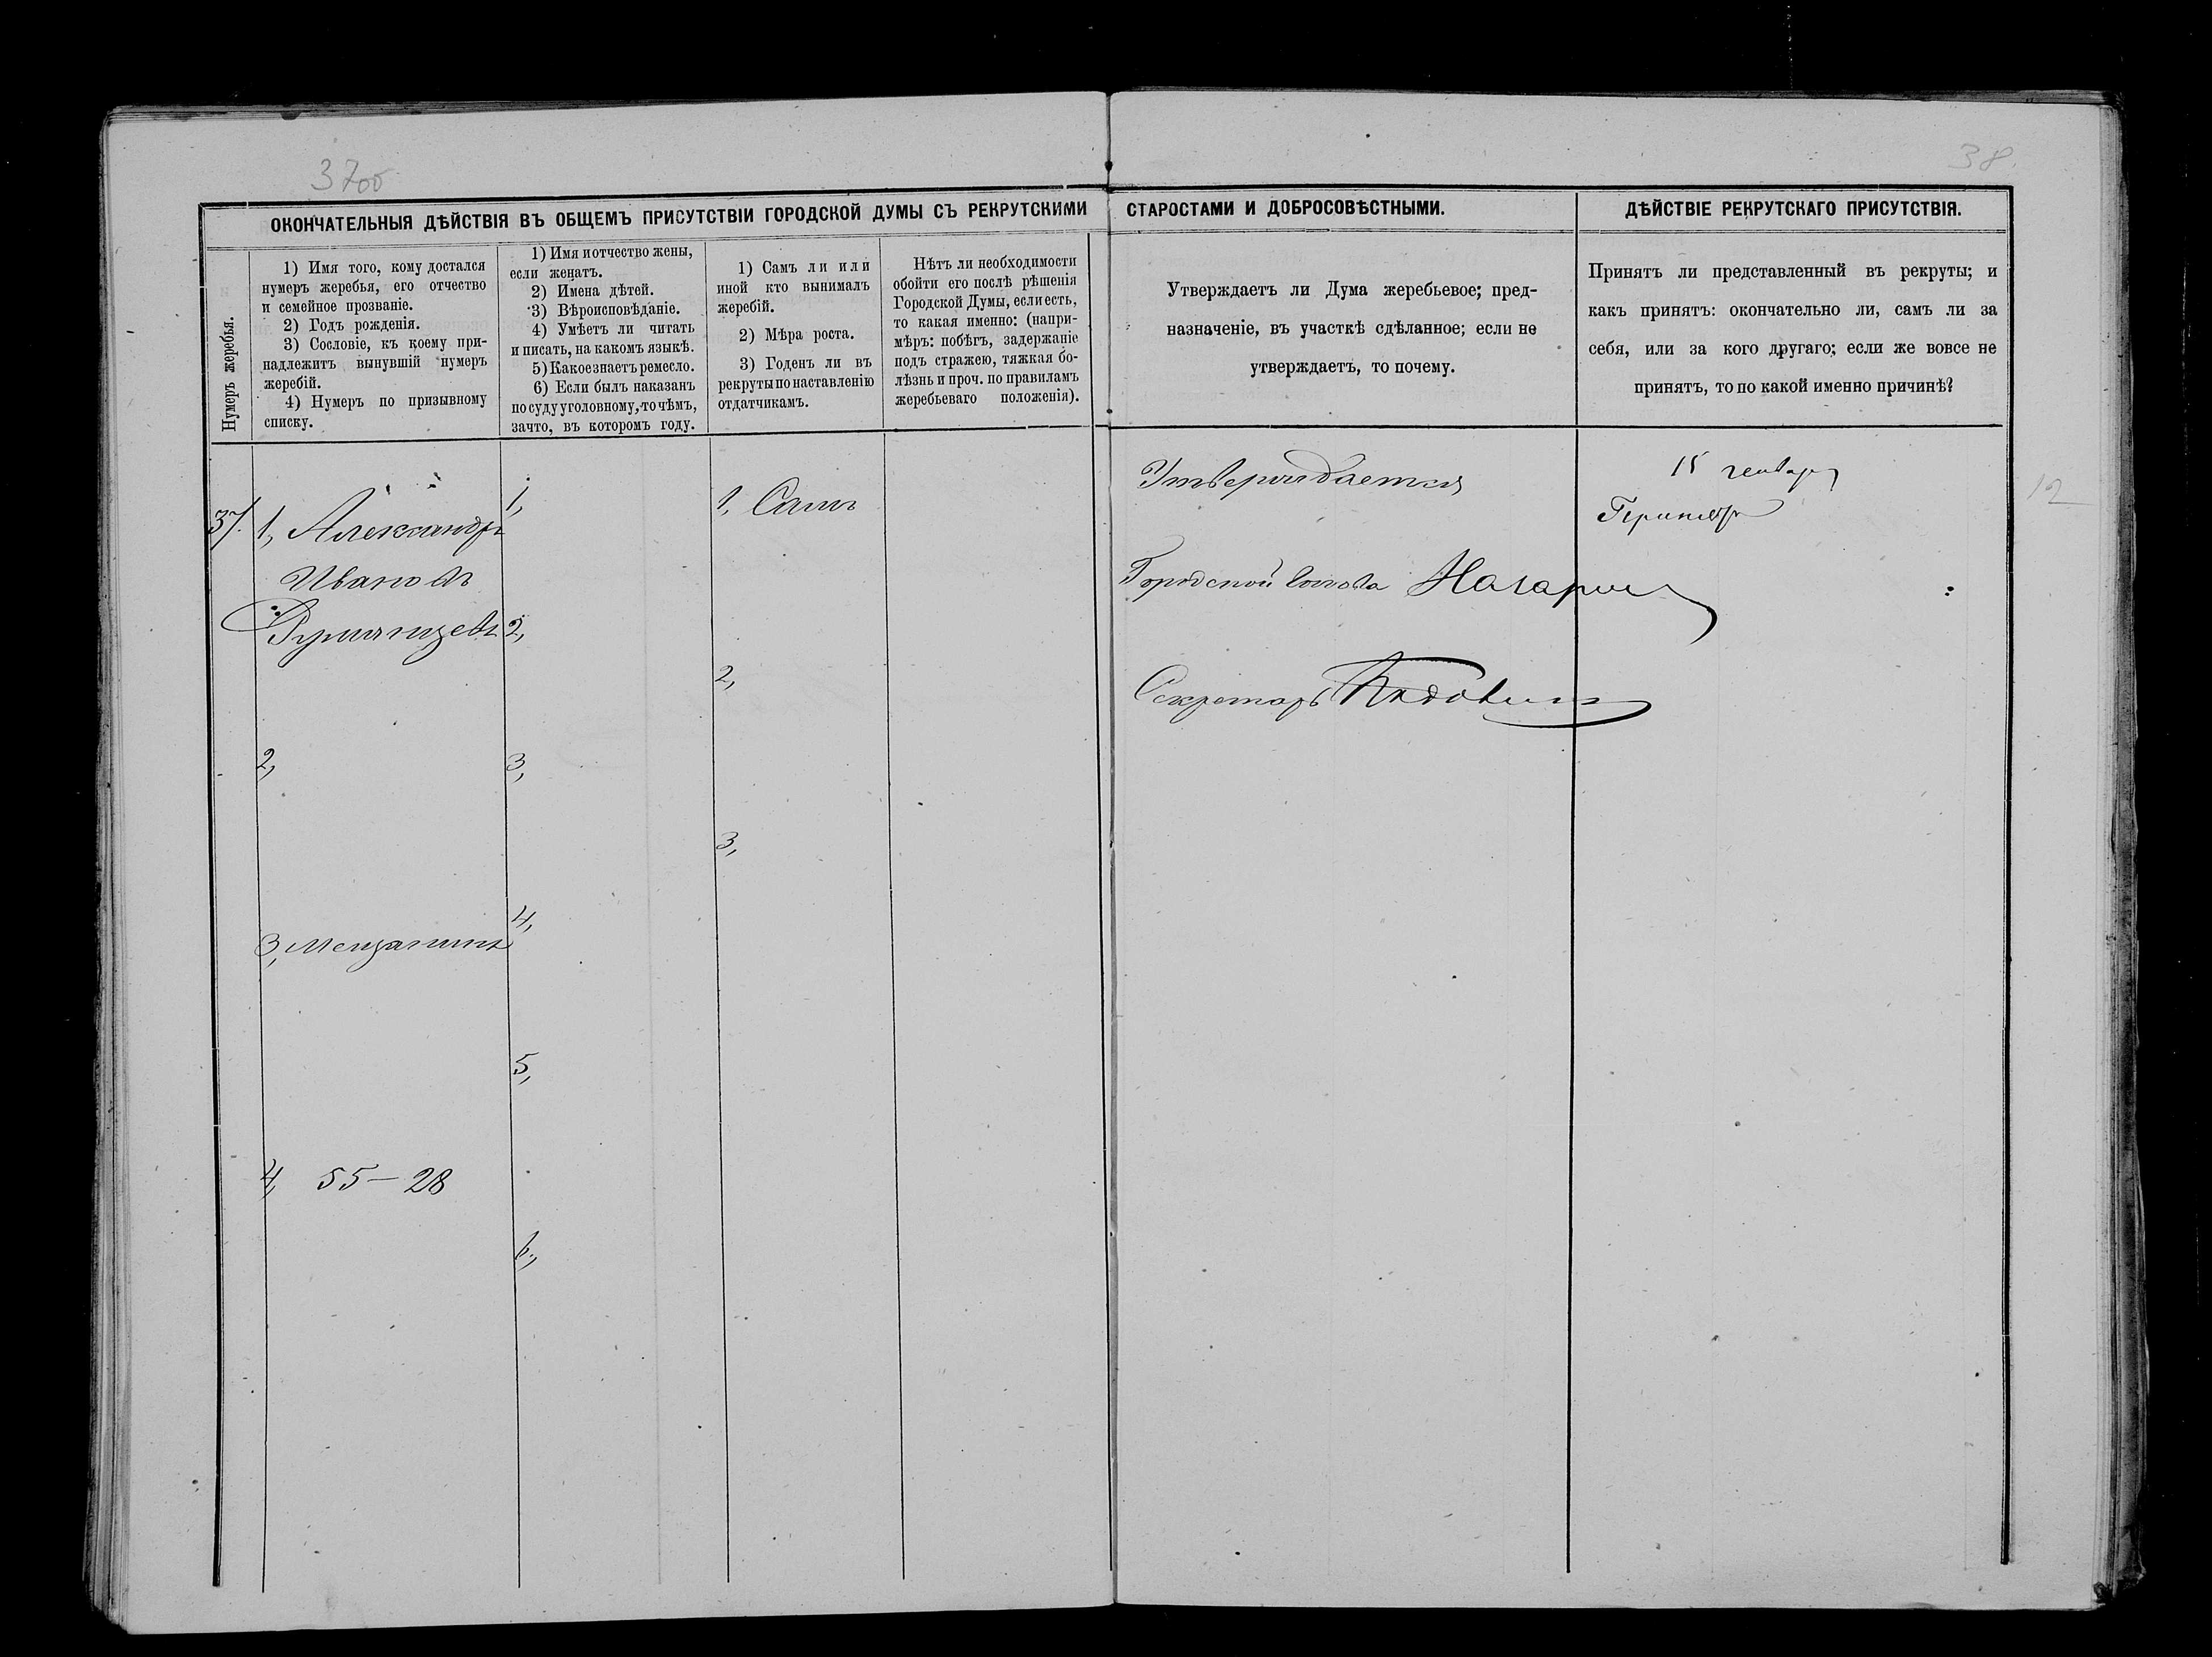 37об
38.
ОКОНЧАТЕЛЬНЫЯ ДѢЙСТВІЯ ВЪ ОБЩЕМЪ ПРИСУТСТВІИ ГОРОДСКОЙ ДУМЫ СЪ РЕКРУТСКИМИ СТАРОСТАМИ И ДОБРОСОВѢСТНЫМИ.
ДѢЙСТВІЕ РЕКРУТСКАГО ПРИСУТСТВІЯ.
Нумеръ жеребья.
1) Имя того, кому достался
нумеръ жеребья, его отчество
и семейное прозваніе.
2) Годъ рожденія.
3) Сословіе, къ коему при-
надлежитъ вынувшій нумеръ
жеребій.
4) Нумеръ по призывному
списку.
1) Имя и отчество жены,
если женатъ.
2) Имена дѣтей.
3) Вѣроисповѣданіе.
4) Умѣетъ ли читать
и писать, на какомъ языкѣ.
5) Какое знаетъ ремесло.
6) Если былъ наказанъ
по суду уголовному, то чѣмъ,
зачто, въ которомъ году.
1) Самъ ли или
иной кто вынималъ
жеребій.
2) Мѣра роста.
3) Годенъ ли въ
рекруты по наставленію
отдатчикамъ.
Нѣтъ ли необходимости
обойти его послѣ рѣшенія
Городской Думы, если есть,
то какая именно: (напри-
мѣръ: побѣгъ, задержаніе
подъ стражею, тяжкая бо-
лѣзнь и проч. по правиламъ
жеребьеваго положенія).
Утверждаетъ ли Дума жеребьевое; пред-
назначеніе, въ участкѣ сдѣланное; если не
утверждаетъ, то почему.
Принятъ ли представленный въ рекруты; и
какъ принятъ: окончательно ли, самъ ли за
себя, или за кого другаго; если же вовсе не
принятъ, то по какой именно причинѣ?
37.
1, Александръ
Ивановъ
Румянцевъ
2,
3, Мещанинъ
4, 55 — 28
1,
2,
3,
4,
5,
6,
1, Самъ
2,
3,
Утверждается
Городской Голова
Секретарь
15 генваря
12